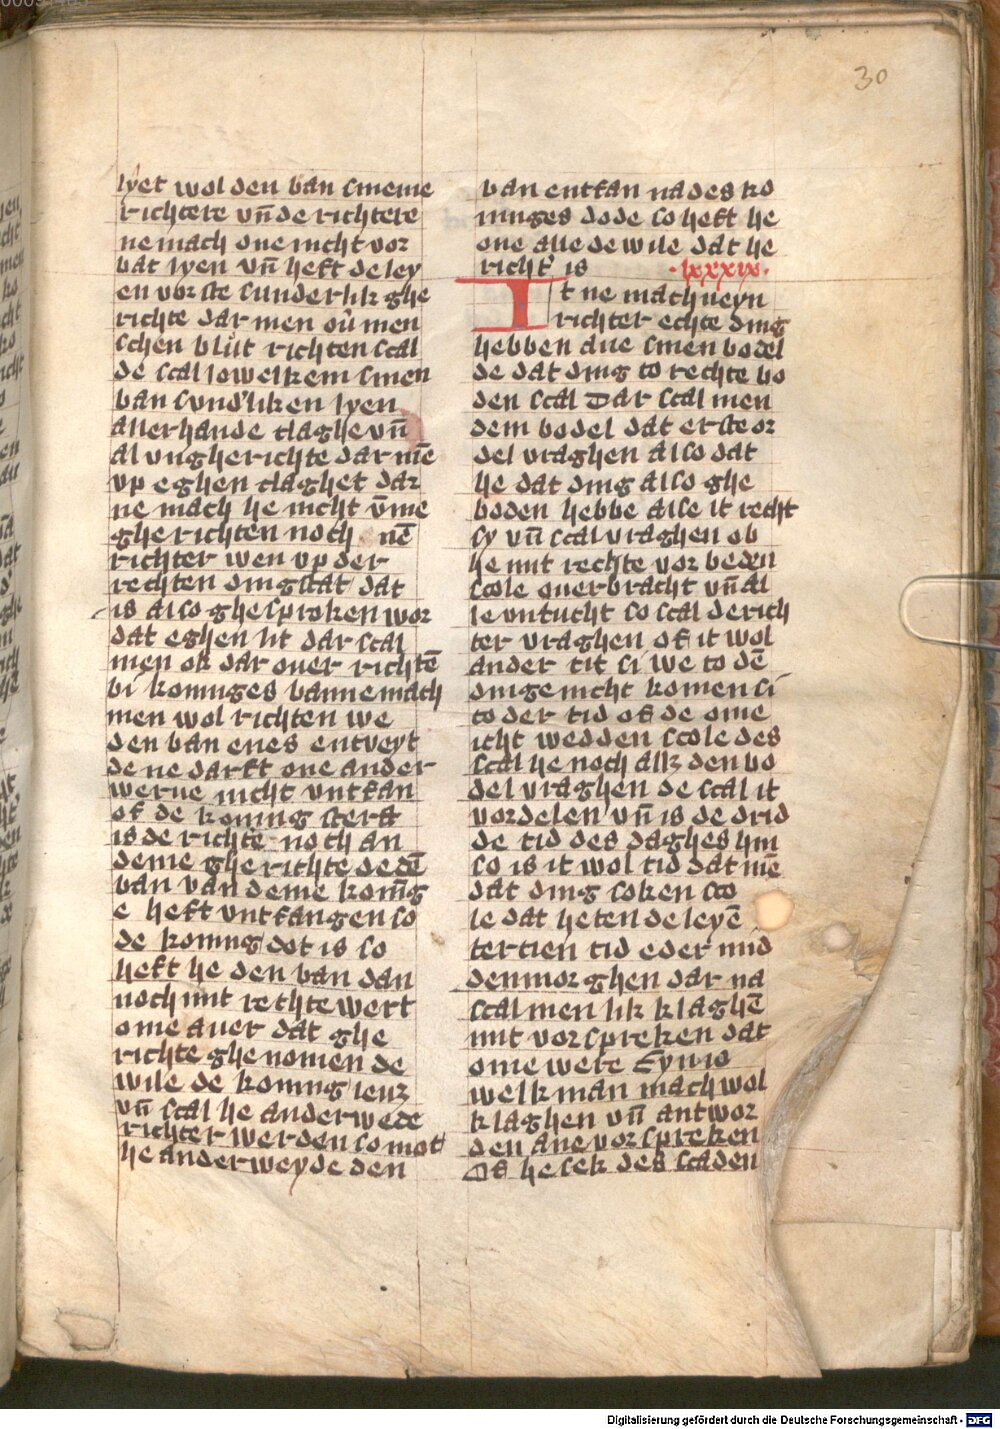 30
lyet wol den ban sineme
richtere vn̄ de richtere
ne mach one nicht vor
bat lyen vn̄ heft de ley
en vorste sunderlik ghe
richte dar men ou᷎ men
schen blut richten scal
de scal iowelkem sinen
ban sund'liken lyen
allerhande claghe vn̄
al vngherichte dar mē
vp eghen claghet dar
ne mach he nicht v̄me
gherichten noch nē
richter wen vp der
rechten dingstat dat
is also ghesproken wor
dat eghen lit dar scal
men ok dar ouer richtē
bi koninges banne mach
men wol richten we
den ban enes entveyt
de ne darft one ander
werue nicht vntfan
of de koning sterft
is de richte noch an
deme gherichte de dē
ban van deme konīg
e heft vntfangen so
de koning dot is so
heft he den ban dan
noch mit rechte wert
ome auer dat ghe
richte ghenomen de
wile de koning leuz
vn̄ scal he anderwede
richter werden so mot
he anderweyde den
ban entfan na des ko
ninges dode so heft he
one alle de wile dat he
richt' is ·lxxxix·
It ne mach neyn
richter echte ding
hebben ane sinen bodel
de dat ding to rechte bo
den scal Dar scal men
dem bodel dat erste or
del vraghen also dat
he dat ding also ghe
boden hebbe alse it recht
sy vn̄ scal vraghen ob
he mit rechte vor beden
scole ouerbracht vn̄ al
le vntucht so scal de rich
ter vraghen of it wol
ander tit si we to dē
dinge nicht komen si
to der tid of de ome
icht wedden scole des
scal he noch allz den bo
del vraghen de scal it
vordelen vn̄ is de drid
de tid des daghes hin
so is it wol tid dat mē
dat ding soken sco
le dat heten de leyē
tertien tid eder mid
den morghen dar na
scal men lik klaghē
mit vorspreken dat
ome were Eyn io
welk man mach wol
klaghen vn̄ antwor
den ane vorspreken
Of he sek des scaden
Digitalisierung gefördert durch die Deutsche Forschungsgemeinschaft - DFG